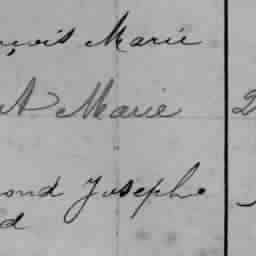 nçois Marie
rt Marie 2
mond Joseph
d